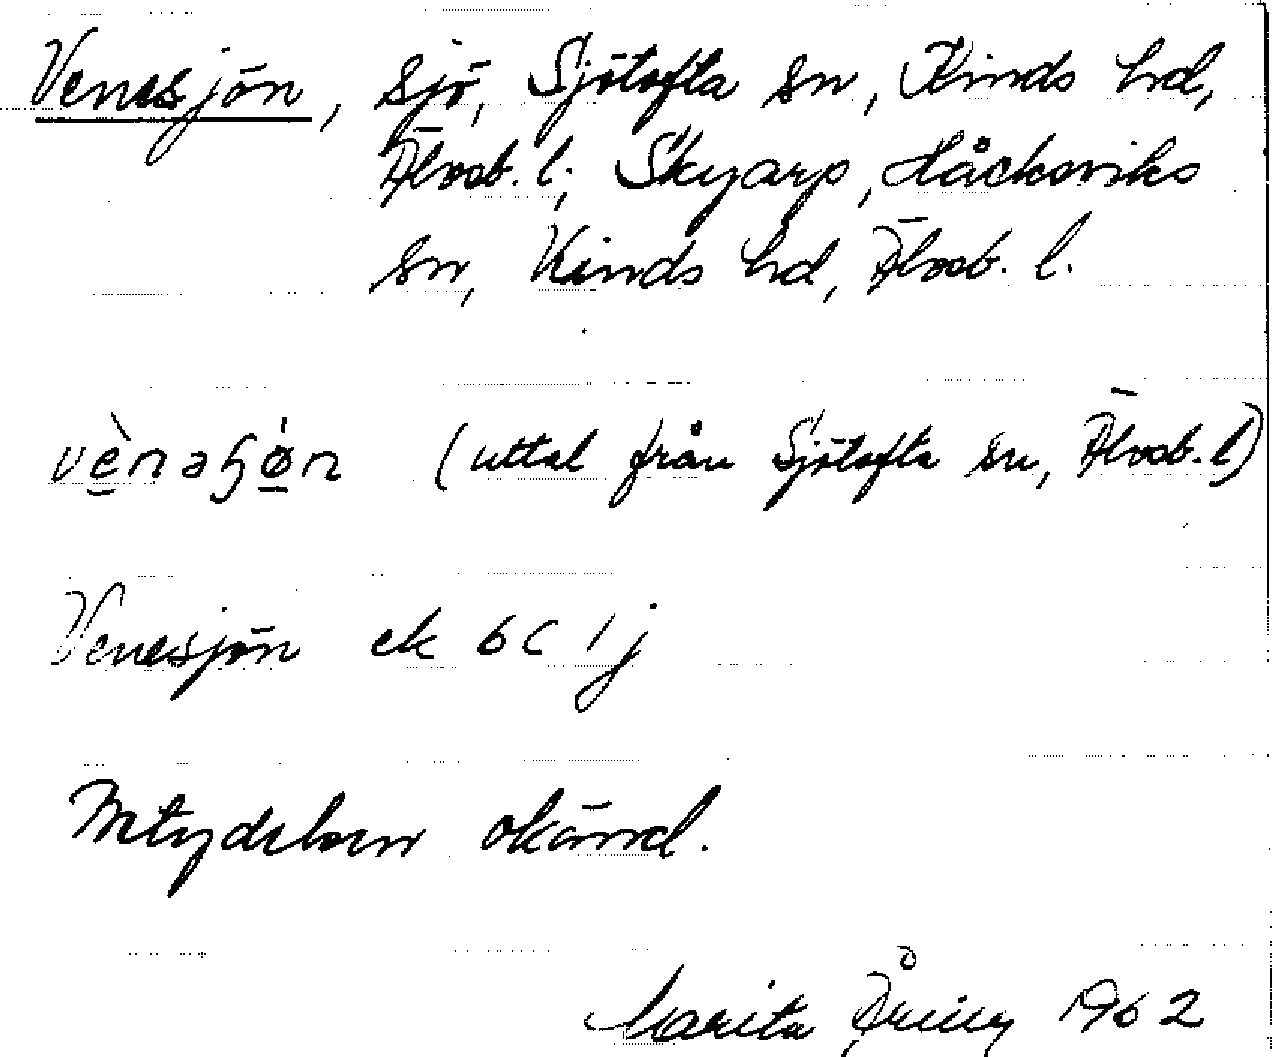 Venesjön, sjö, Sjötofta sn, Kinds hd,
Älvsb. l; Skyarp, Håcksviks
sn, Kinds hd, Älvsb. l.
vènəɧø̀n (uttal från Sjötofta sn, Älvsb. l)
Venesjön ek 6C 1j
Betydelsen okänd.
Marita 1962